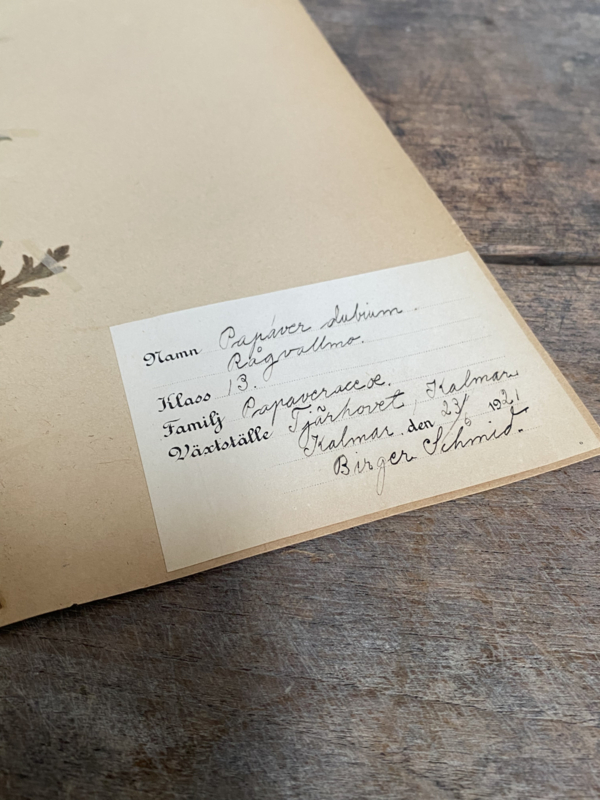 Namn Papaver dubium.
Rågvallmo.
Klass 13.
Familj Papaveraceæ.
Växtställe Tjärhovet, Kalmar
Kalmar den 23/6 1921
Birger Schmid.